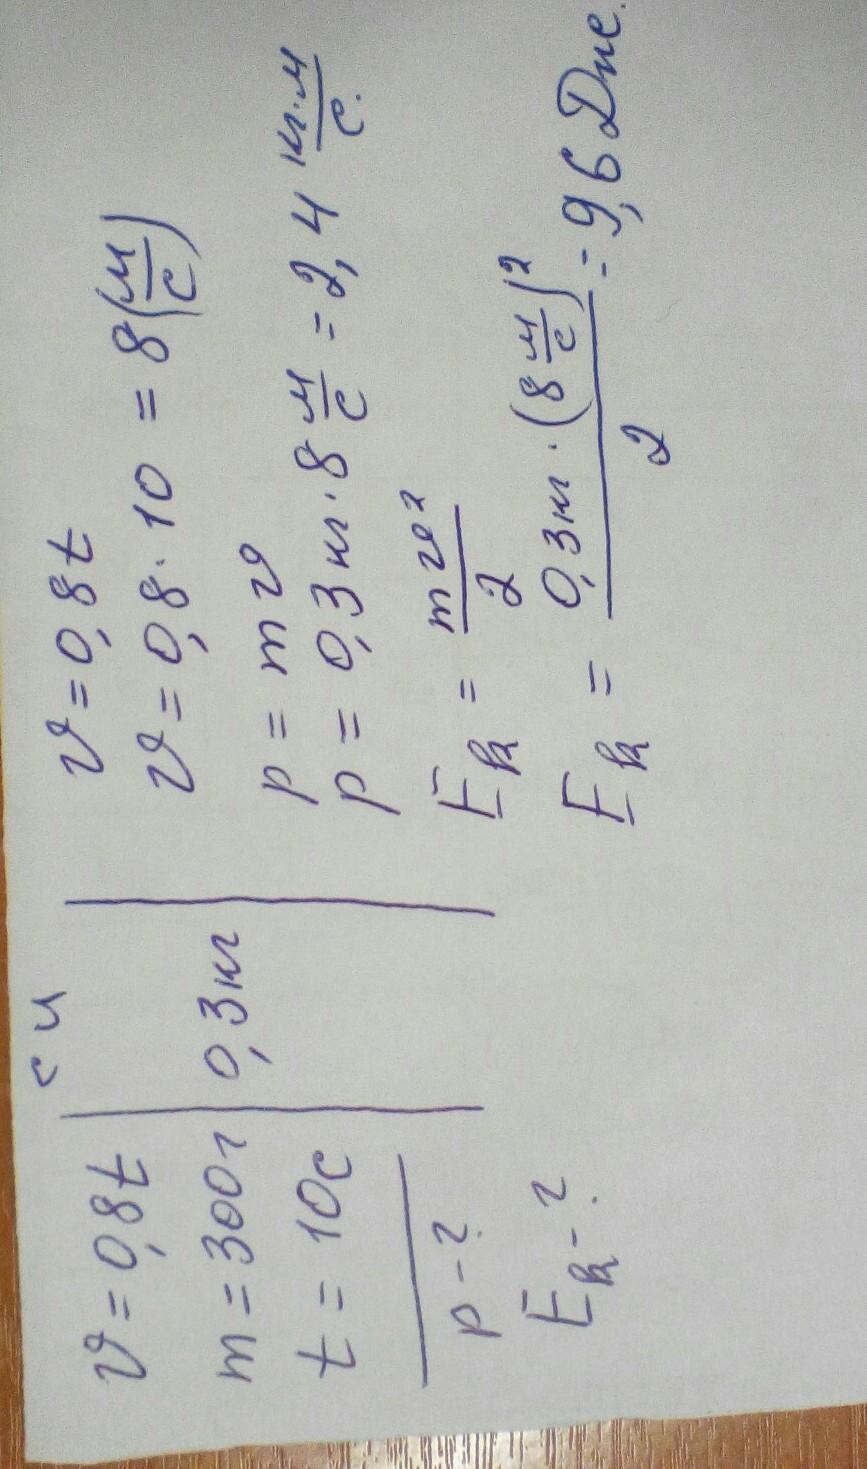 СИ
υ = 0,8t
m = 300г
t = 10с
p - ?
E_k - ?
0,3кг
υ = 0,8t
υ = 0,8 · 10 = 8 (м/с)
p = mυ
p = 0,3 кг · 8 м/с = 2,4 кг·м/с.
E_k = mυ²/2
E_k = 0,3кг · (8 м/с)²/2 = 9,6 Дж.